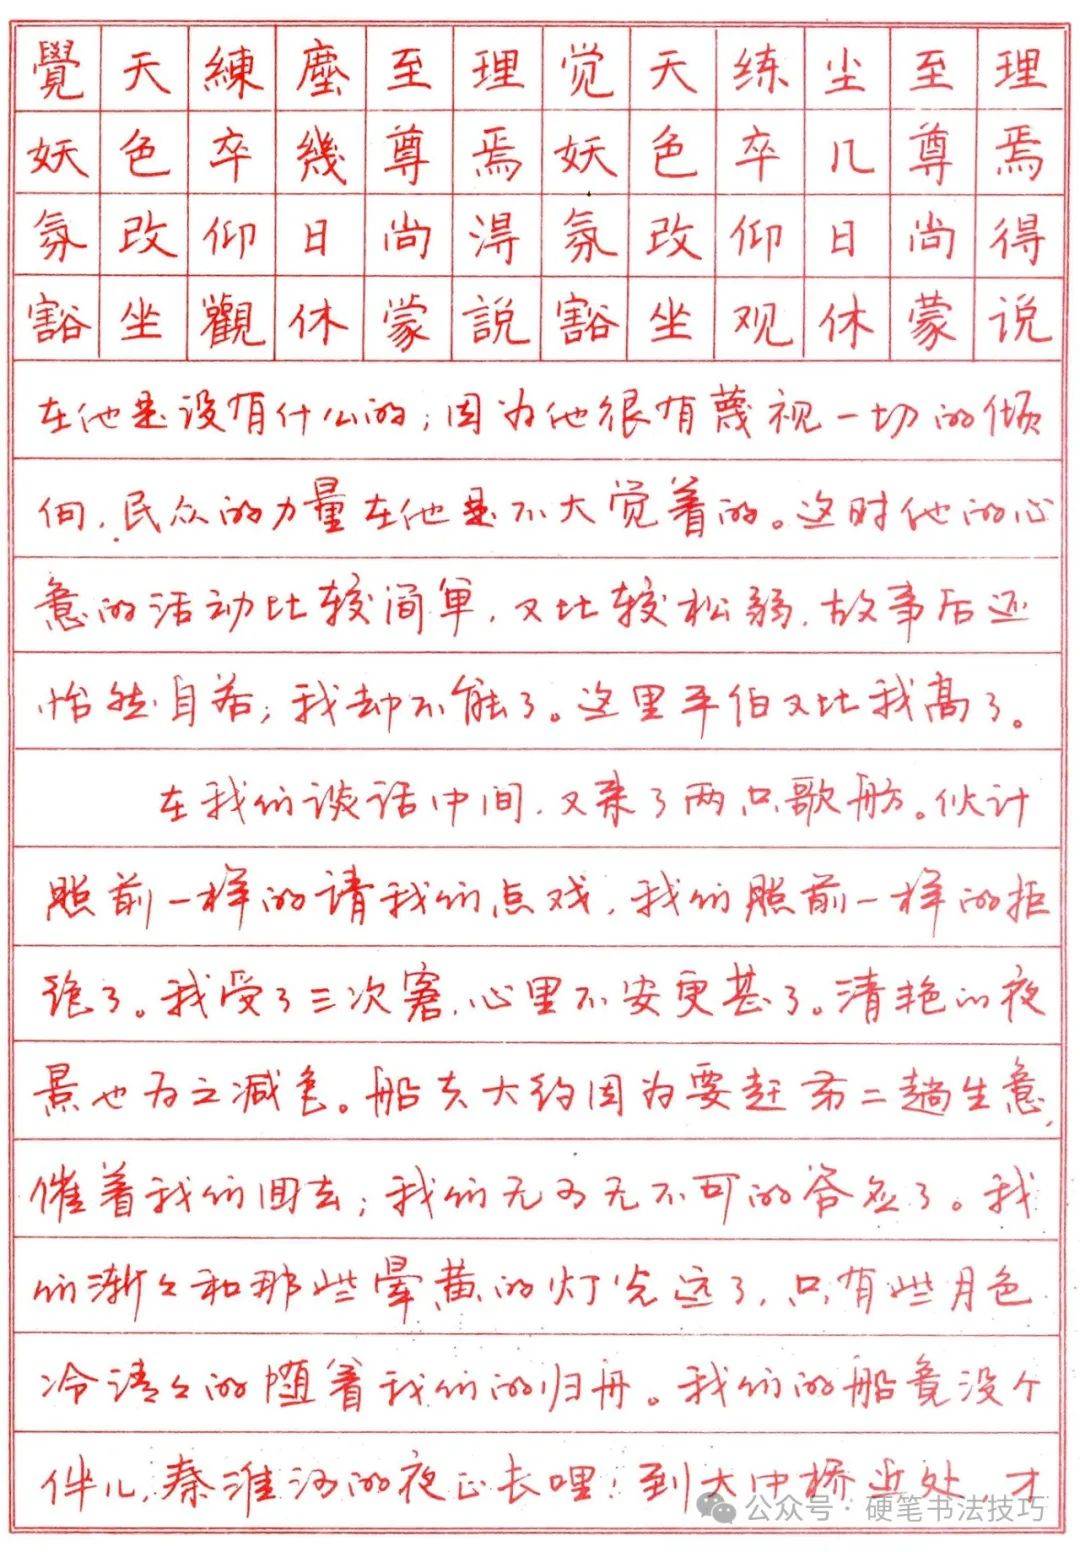 覺天練塵至理觉天练尘至理
妖色卒幾尊焉妖色卒几尊焉
氛改仰日尚淂氛改仰日尚得
豁坐觀休蒙説豁坐观休蒙说
在他是没有什么的；因为他很有蔑视一切的倾
向，民众的力量在他是不大觉着的。这时他的心
意的活动比较简单，又比较松弱，故事后还
怡然自若；我却不能了。这里平伯又比我高了。
在我们谈话中间，又来了两只歌舫。伙计
照前一样的请我们点戏，我们照前一样的拒
绝了。我受了三次窘，心里不安更甚了。清艳的夜
景也为之减色。船夫大约因为要赶第二趟生意，
催着我们回去；我们无可无不可的答应了。我
们渐々和那些晕黄的灯光远了，只有些月色
冷清々的随着我们的归舟。我们的船竟没个
伴儿，秦淮河的夜正长哩！到大中桥近处，才
公众号·硬笔书法技巧